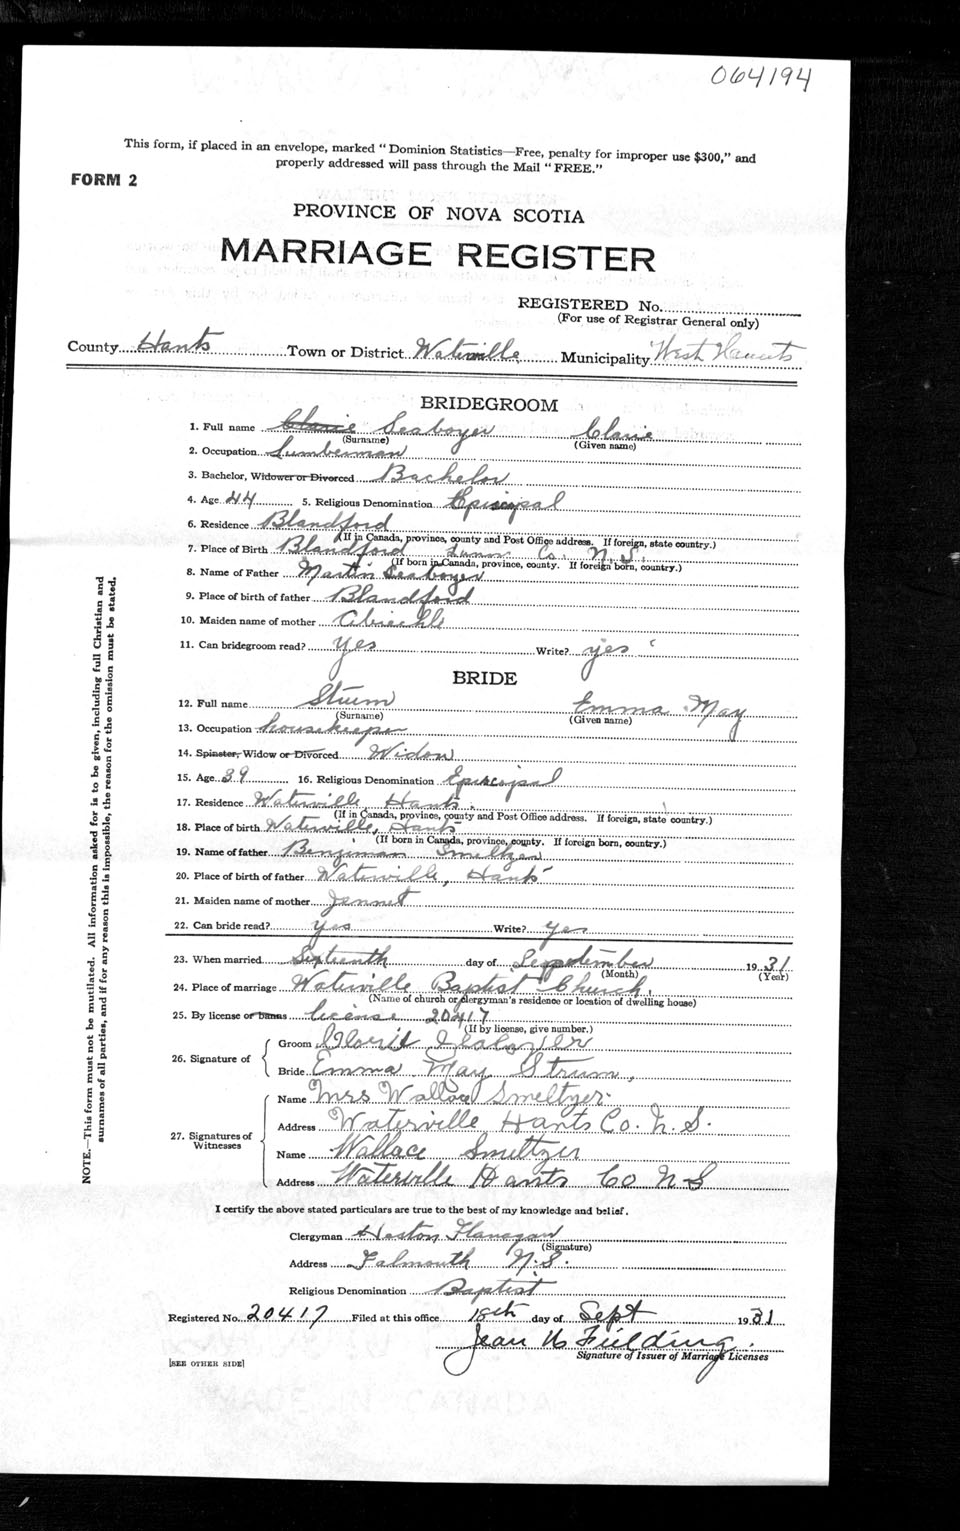 064194
This form, if placed in an envelope, marked "Dominion Statistics—Free, penalty for improper use $300," and
properly addressed will pass through the Mail "FREE."
FORM 2
PROVINCE OF NOVA SCOTIA
MARRIAGE REGISTER
REGISTERED No.
(For use of Registrar General only)
County Hants Town or District Waterville Municipality West Hants
BRIDEGROOM
1. Full name Clarie Seaboyer Clarie
(Surname) (Given name)
2. Occupation Lumberman
3. Bachelor, Widower or Divorced Bachelor
4. Age 44 5. Religious Denomination Episcopal
6. Residence Blandford
(If in Canada, province, county and Post Office address. If foreign, state country.)
7. Place of Birth Blandford Lunn Co. N.S.
(If born in Canada, province, county. If foreign born, country.)
8. Name of Father Martin Seaboyer
9. Place of birth of father Blandford
10. Maiden name of mother
11. Can bridegroom read? Yes Write? yes
BRIDE
12. Full name Strum Emma May
(Surname) (Given name)
13. Occupation housekeeper
14. Spinster, Widow or Divorced Widow
15. Age 39 16. Religious Denomination Episcopal
17. Residence Waterville Hants.
(If in Canada, province, county and Post Office address. If foreign, state country.)
18. Place of birth Waterville, Hants
(If born in Canada, province, county. If foreign born, country.)
19. Name of father Benjiman Smeltzer
20. Place of birth of father Waterville, Hants
21. Maiden name of mother Jennet
22. Can bride read? Yes Write? yes
23. When married Sixteenth day of September 1931
(Month) (Year)
24. Place of marriage Waterville Baptist Church.
(Name of church or clergyman's residence or location of dwelling house)
25. By license or banns license 20417
(If by license, give number.)
26. Signature of
Groom Clarie Seaboyer
Bride Emma May Strum,
27. Signatures of Witnesses
Name Mrs Wallace Smeltzer
Address Waterville Hants Co. N.S.
Name Wallace Smeltzer
Address Waterville Hants Co N S
I certify the above stated particulars are true to the best of my knowledge and belief.
Clergyman Haston Flanagan
(Signature)
Address Falmouth N.S.
Religious Denomination Baptist
Registered No. 20417 Filed at this office 18th day of Sept 1931
Jean W Fielding.
Signature of Issuer of Marriage Licenses
[SEE OTHER SIDE]
NOTE.—This form must not be mutilated. All information asked for is to be given, including full Christian and
surnames of all parties, and if for any reason this is impossible, the reason for the omission must be stated.